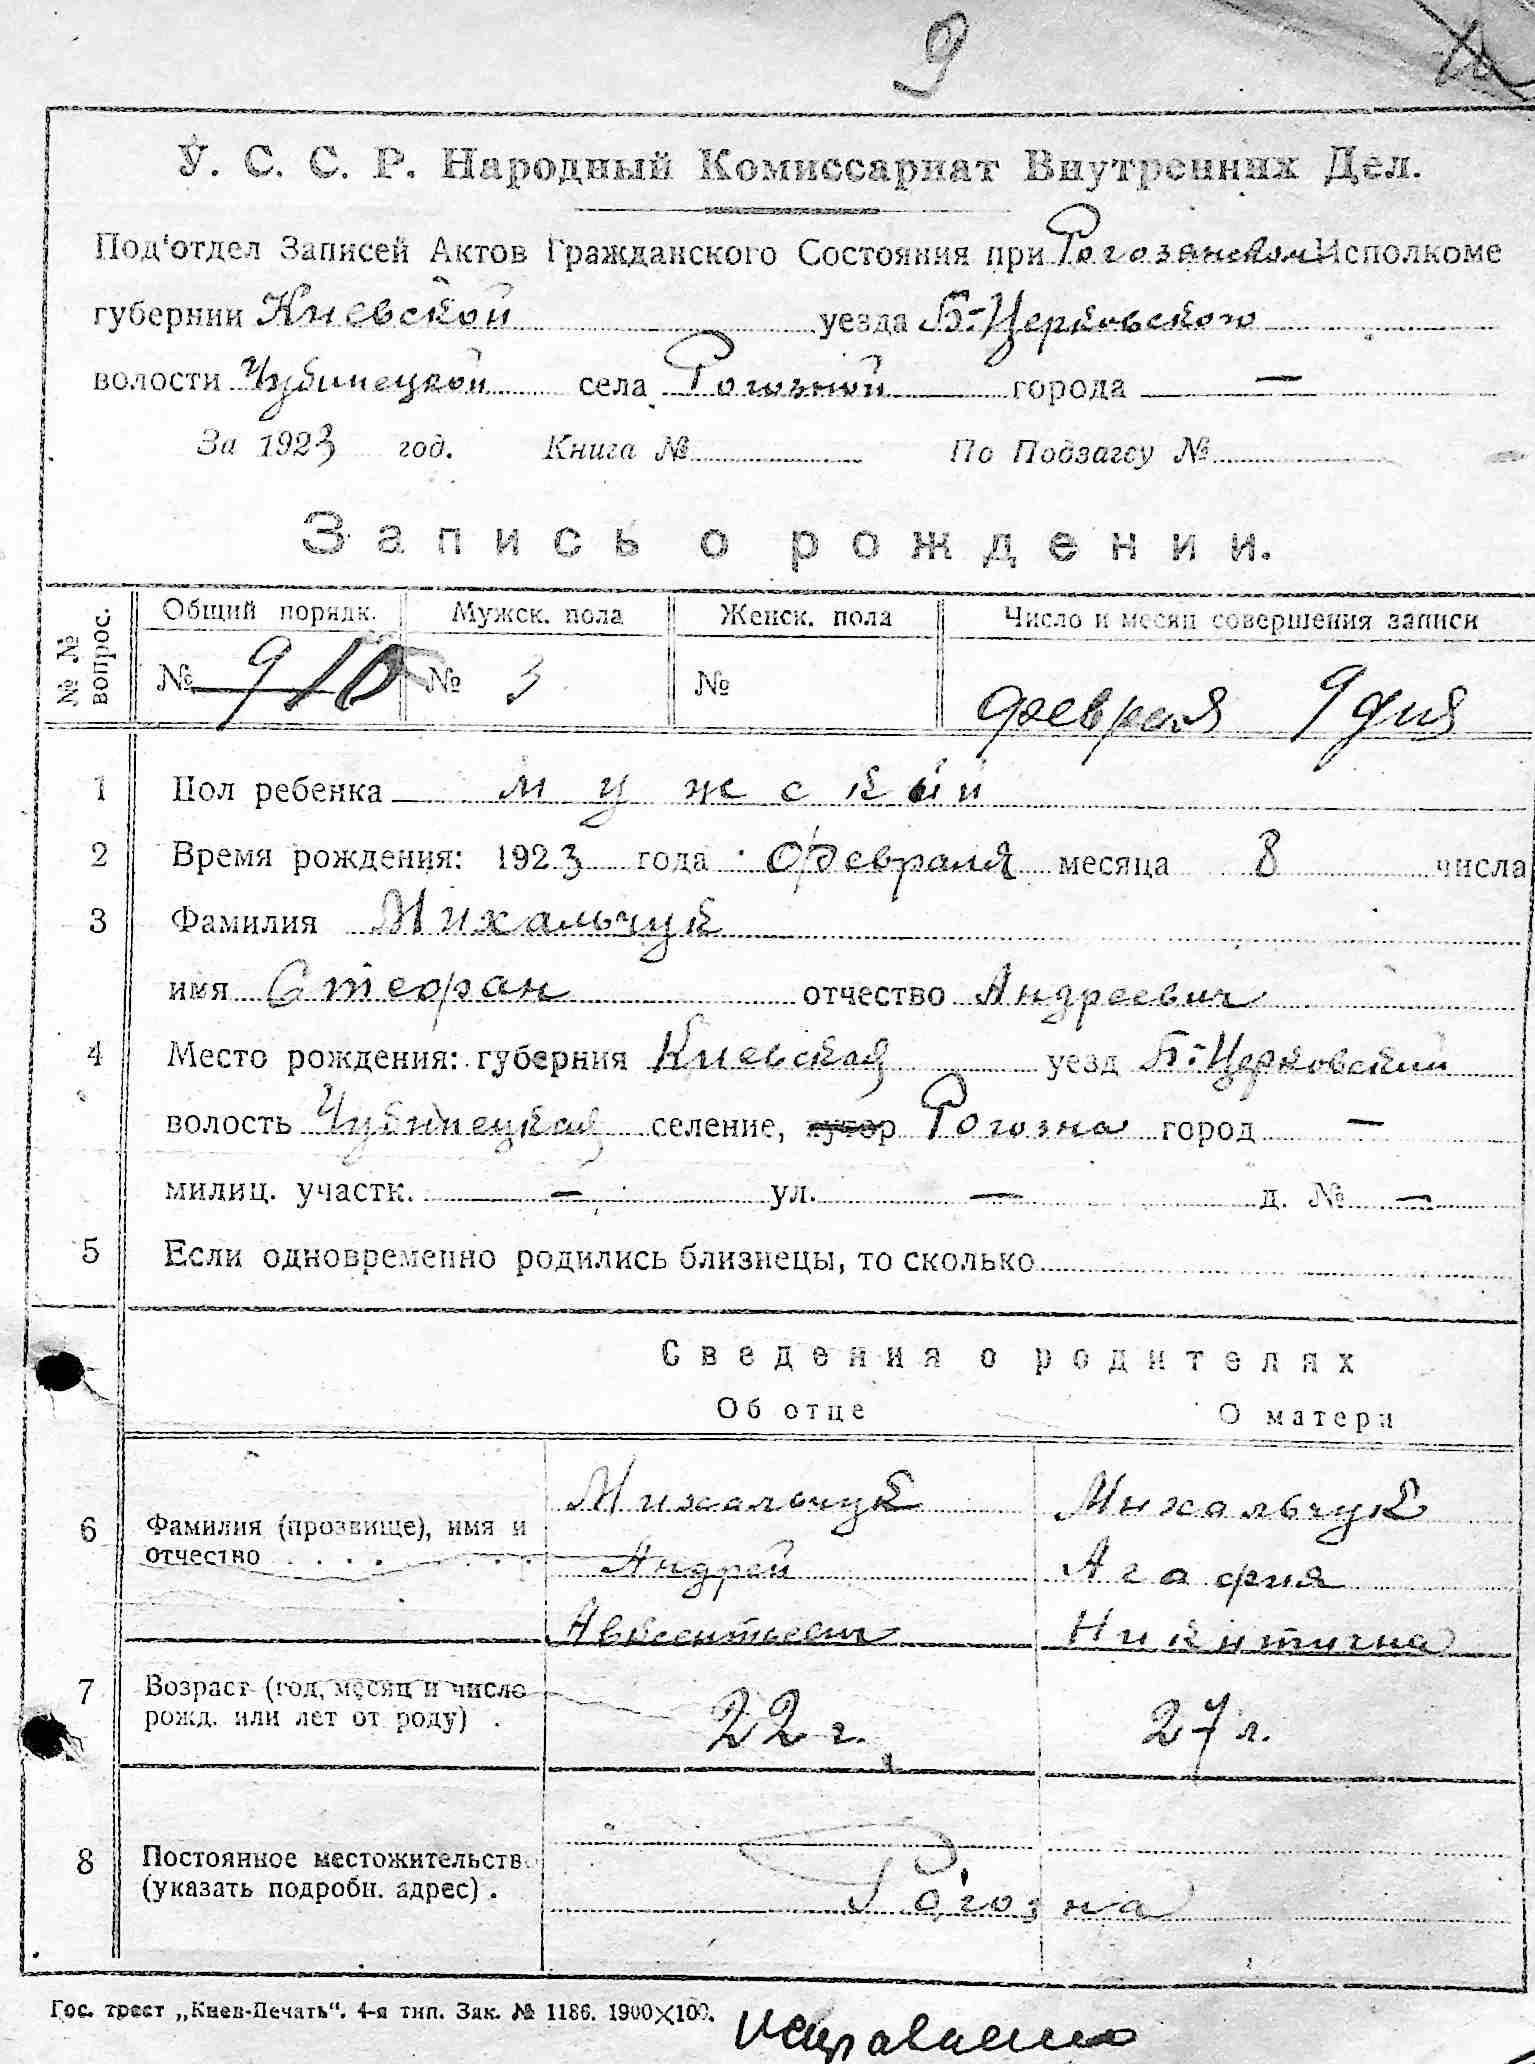 9
У. С. С. Р. Народный Комиссариат Внутренних Дел.
Под'отдел Записей Актов Гражданского Состояния при Рогозянском Исполкоме
губернии Киевской уезда Б-Церковского
волости Чубинецкой села Рогозной города —
За 1923 год. Книга № По Подзагсу №
Запись о рождении.
№ № вопрос. Общий порядк. Мужск. пола Женск. пола Число и месяц совершения записи
№ 9 10 № 3 № февраля 9 дня
1 Пол ребенка мужской
2 Время рождения: 1923 года февраля месяца 8 числа
3 Фамилия Михальчук
имя Стефан отчество Андреевич
4 Место рождения: губерния Киевская уезд Б-Церковский
волость Чубинецкая селение, хутор Рогозна город —
милиц. участк. — ул. — д. № —
5 Если одновременно родились близнецы, то сколько
Сведения о родителях
Об отце О матери
Михальчук Михальчук
6 Фамилия (прозвище), имя и
отчество . . . . Андрей Агафия
Авксентьевич Никитична
7 Возраст (год, месяц и число
рожд. или лет от роду) . 22 г. 27 л.
8 Постоянное местожительство
(указать подробн. адрес) . Рогозна
Гос. трест „Киев-Печать“. 4-я тип. Зак. № 1186. 1900×100.
исправлено